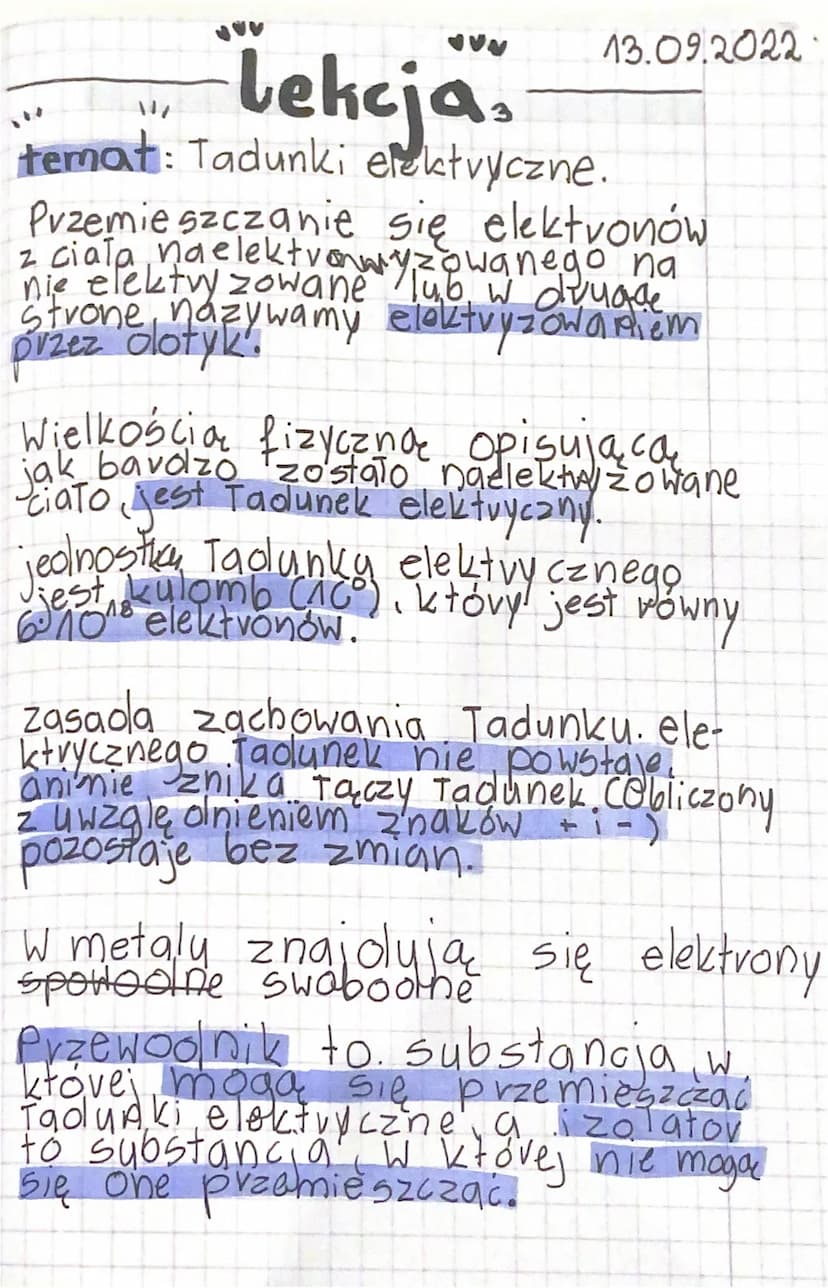 13.09.2022
lekcja 3
temat: Ładunki elektryczne.
Przemieszczanie się elektronów
z ciała naelektronwyzowanego na
nie elektryzowane lub w drugą
stronę, nazywamy elektryzowaniem
przez dotyk.
Wielkością fizyczną opisującą,
jak bardzo zostało naelektryzowane
ciało, jest ładunek elektryczny.
jednostką ładunku elektrycznego
jest kulomb (1C), który jest równy
6·10¹⁸ elektronów.
zasada zachowania ładunku. ele-
ktrycznego ładunek nie powstaje,
ani nie znika łączy ładunek. (Obliczony
z uwzględnieniem znaków + i -)
pozostaje bez zmian.
W metalu znajdują się elektrony
swobodne
Przewodnik to substancja, w
której mogą się przemieszczać
ładunki elektryczne, a izolator
to substancja, w której nie mogą
się one przemieszczać.